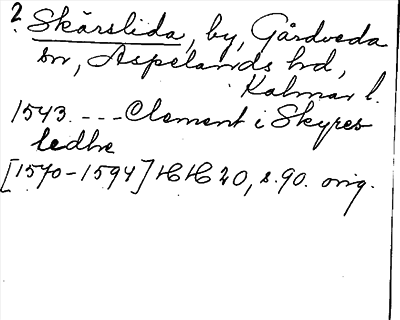 ? Skärslida, by, Gårdveda
sn, Aspelands hd,
Kalmar l.
1543. --- Clement i Skyres
ledhe
[1570-1594] HH 20, s. 90. orig.